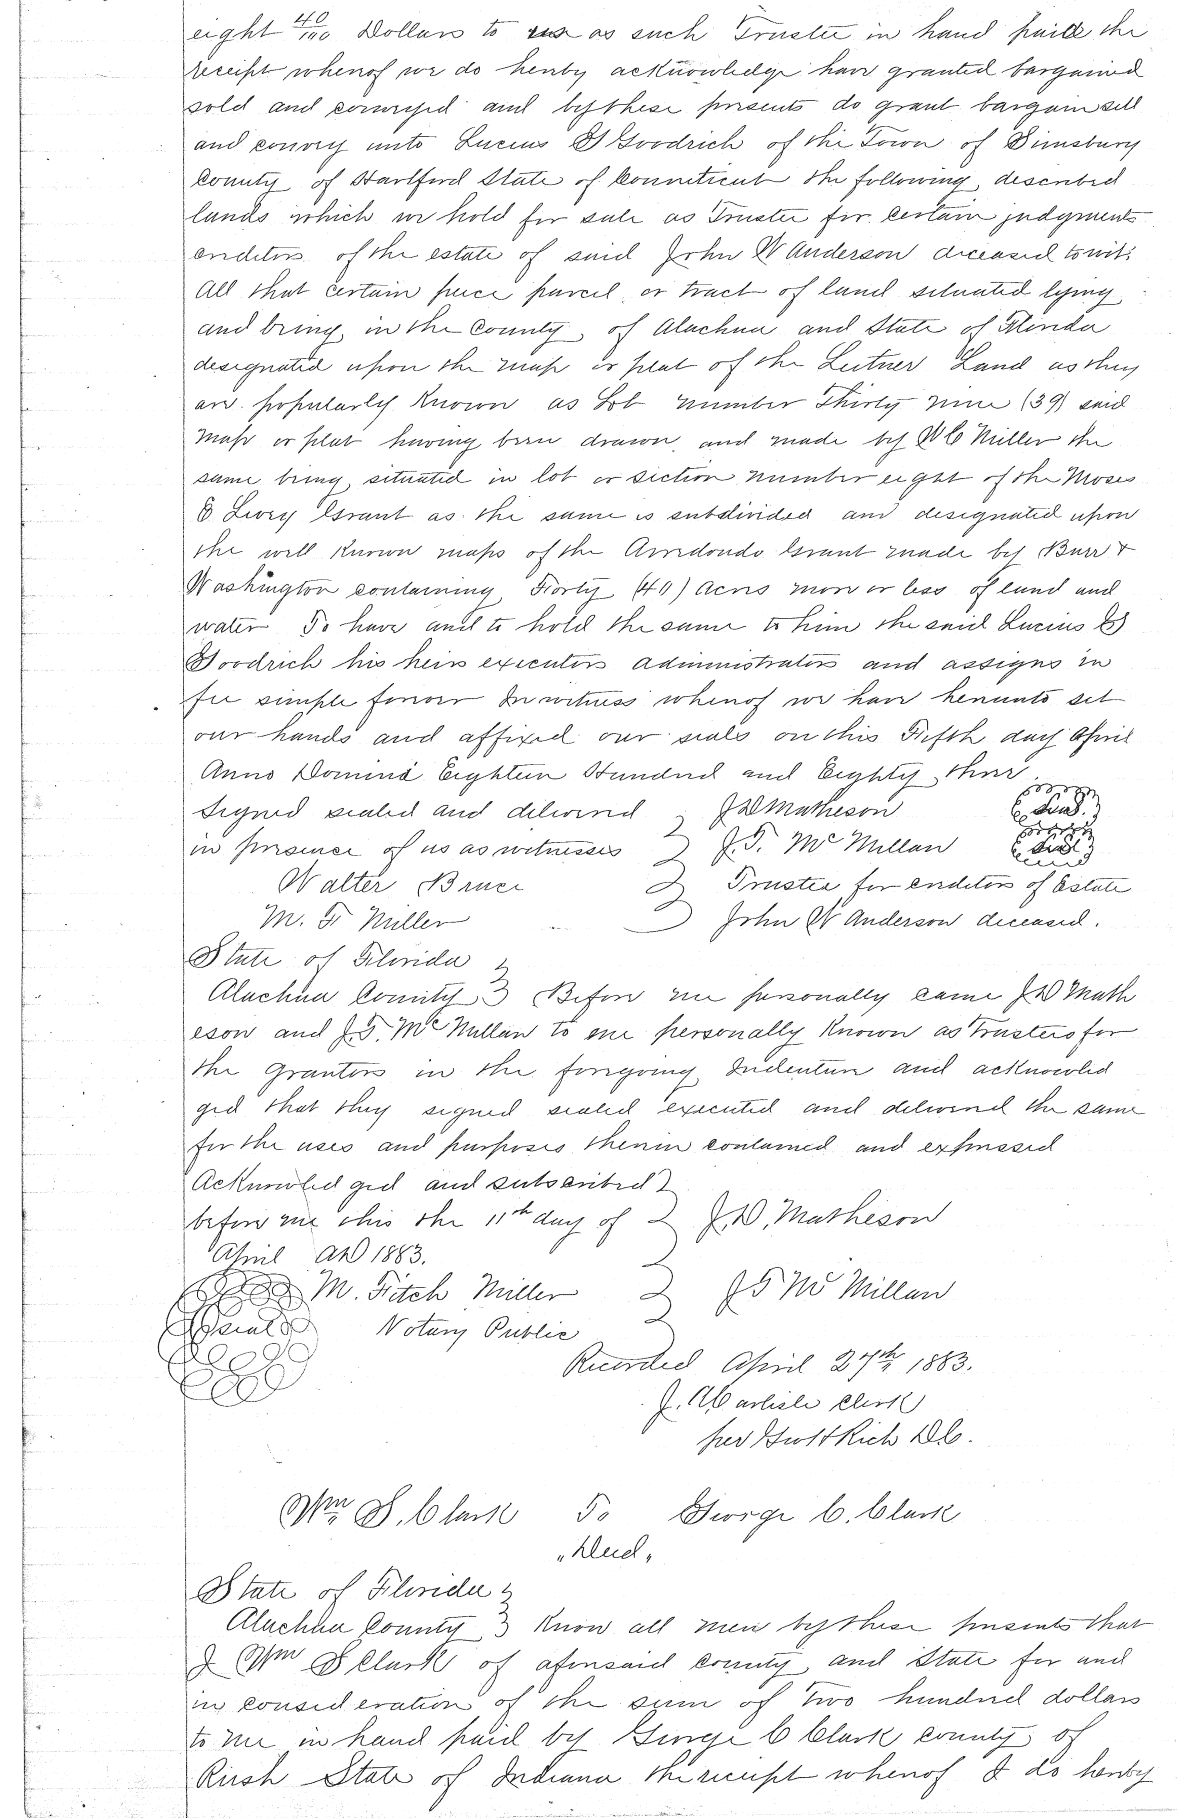 eight 40/100 Dollars to us as such Trustee in hand paid the
receipt whereof we do hereby acknowledge have granted bargained
sold and conveyed and by these presents do grant bargain sell
and convey unto Lucius Goodrich of the Town of Simsbury
County of Hartford State of Connecticut the following described
lands which we hold for sale as Trustee for certain judgments
creditors of the estate of said John W Anderson deceased to wit:
All that certain piece parcel or tract of land situated lying
and being in the County of Alachua and State of Florida
designated upon the map or plat of the Leitner Land as they
are popularly Known as Lot number Thirty nine (39) said
map or plat having been drawn and made by W C Miller the
same being situated in lot or section number eight of the Moses
E Levy Grant as the same is subdivided and designated upon
the well Known maps of the Arredondo Grant made by Burr &
Washington containing Forty (40) Acres more or less of land and
water To have and to hold the same to him the said Lucius
Goodrich his heirs executors administrators and assigns in
fee simple forever In witness whereof we have hereunto set
our hands and affixed our seals on this Fifth day April
Anno Domini Eighteen Hundred and Eighty three
Signed sealed and delivered J D Matheson Seal
in presence of us as witnesses J. T. McMillan Seal
Walter Bruce Trustee for creditors of Estate
M. F. Miller John W Anderson deceased.
State of Florida
Alachua County Before me personally came J D Math
eson and J. T. McMillan to me personally Known as Trustees for
the Grantors in the foregoing Indenture and acknowled
ged that they signed sealed executed and delivered the same
for the uses and purposes therein contained and expressed
Acknowledged and subscribed
before me this the 11th day of J. D. Matheson
April AD 1883.
M. Fitch Miller J T McMillan
seal Notary Public
Recorded April 27th 1883.
J. A Carlisle Clerk
per Rich D C.
Wm S. Clark To George C. Clark
"Deed"
State of Florida
Alachua County Know all men by these presents that
I Wm S Clark of aforesaid County and State for and
in consideration of the sum of Two hundred dollars
to me in hand paid by George C Clark County of
Rush State of Indiana the receipt whereof I do hereby